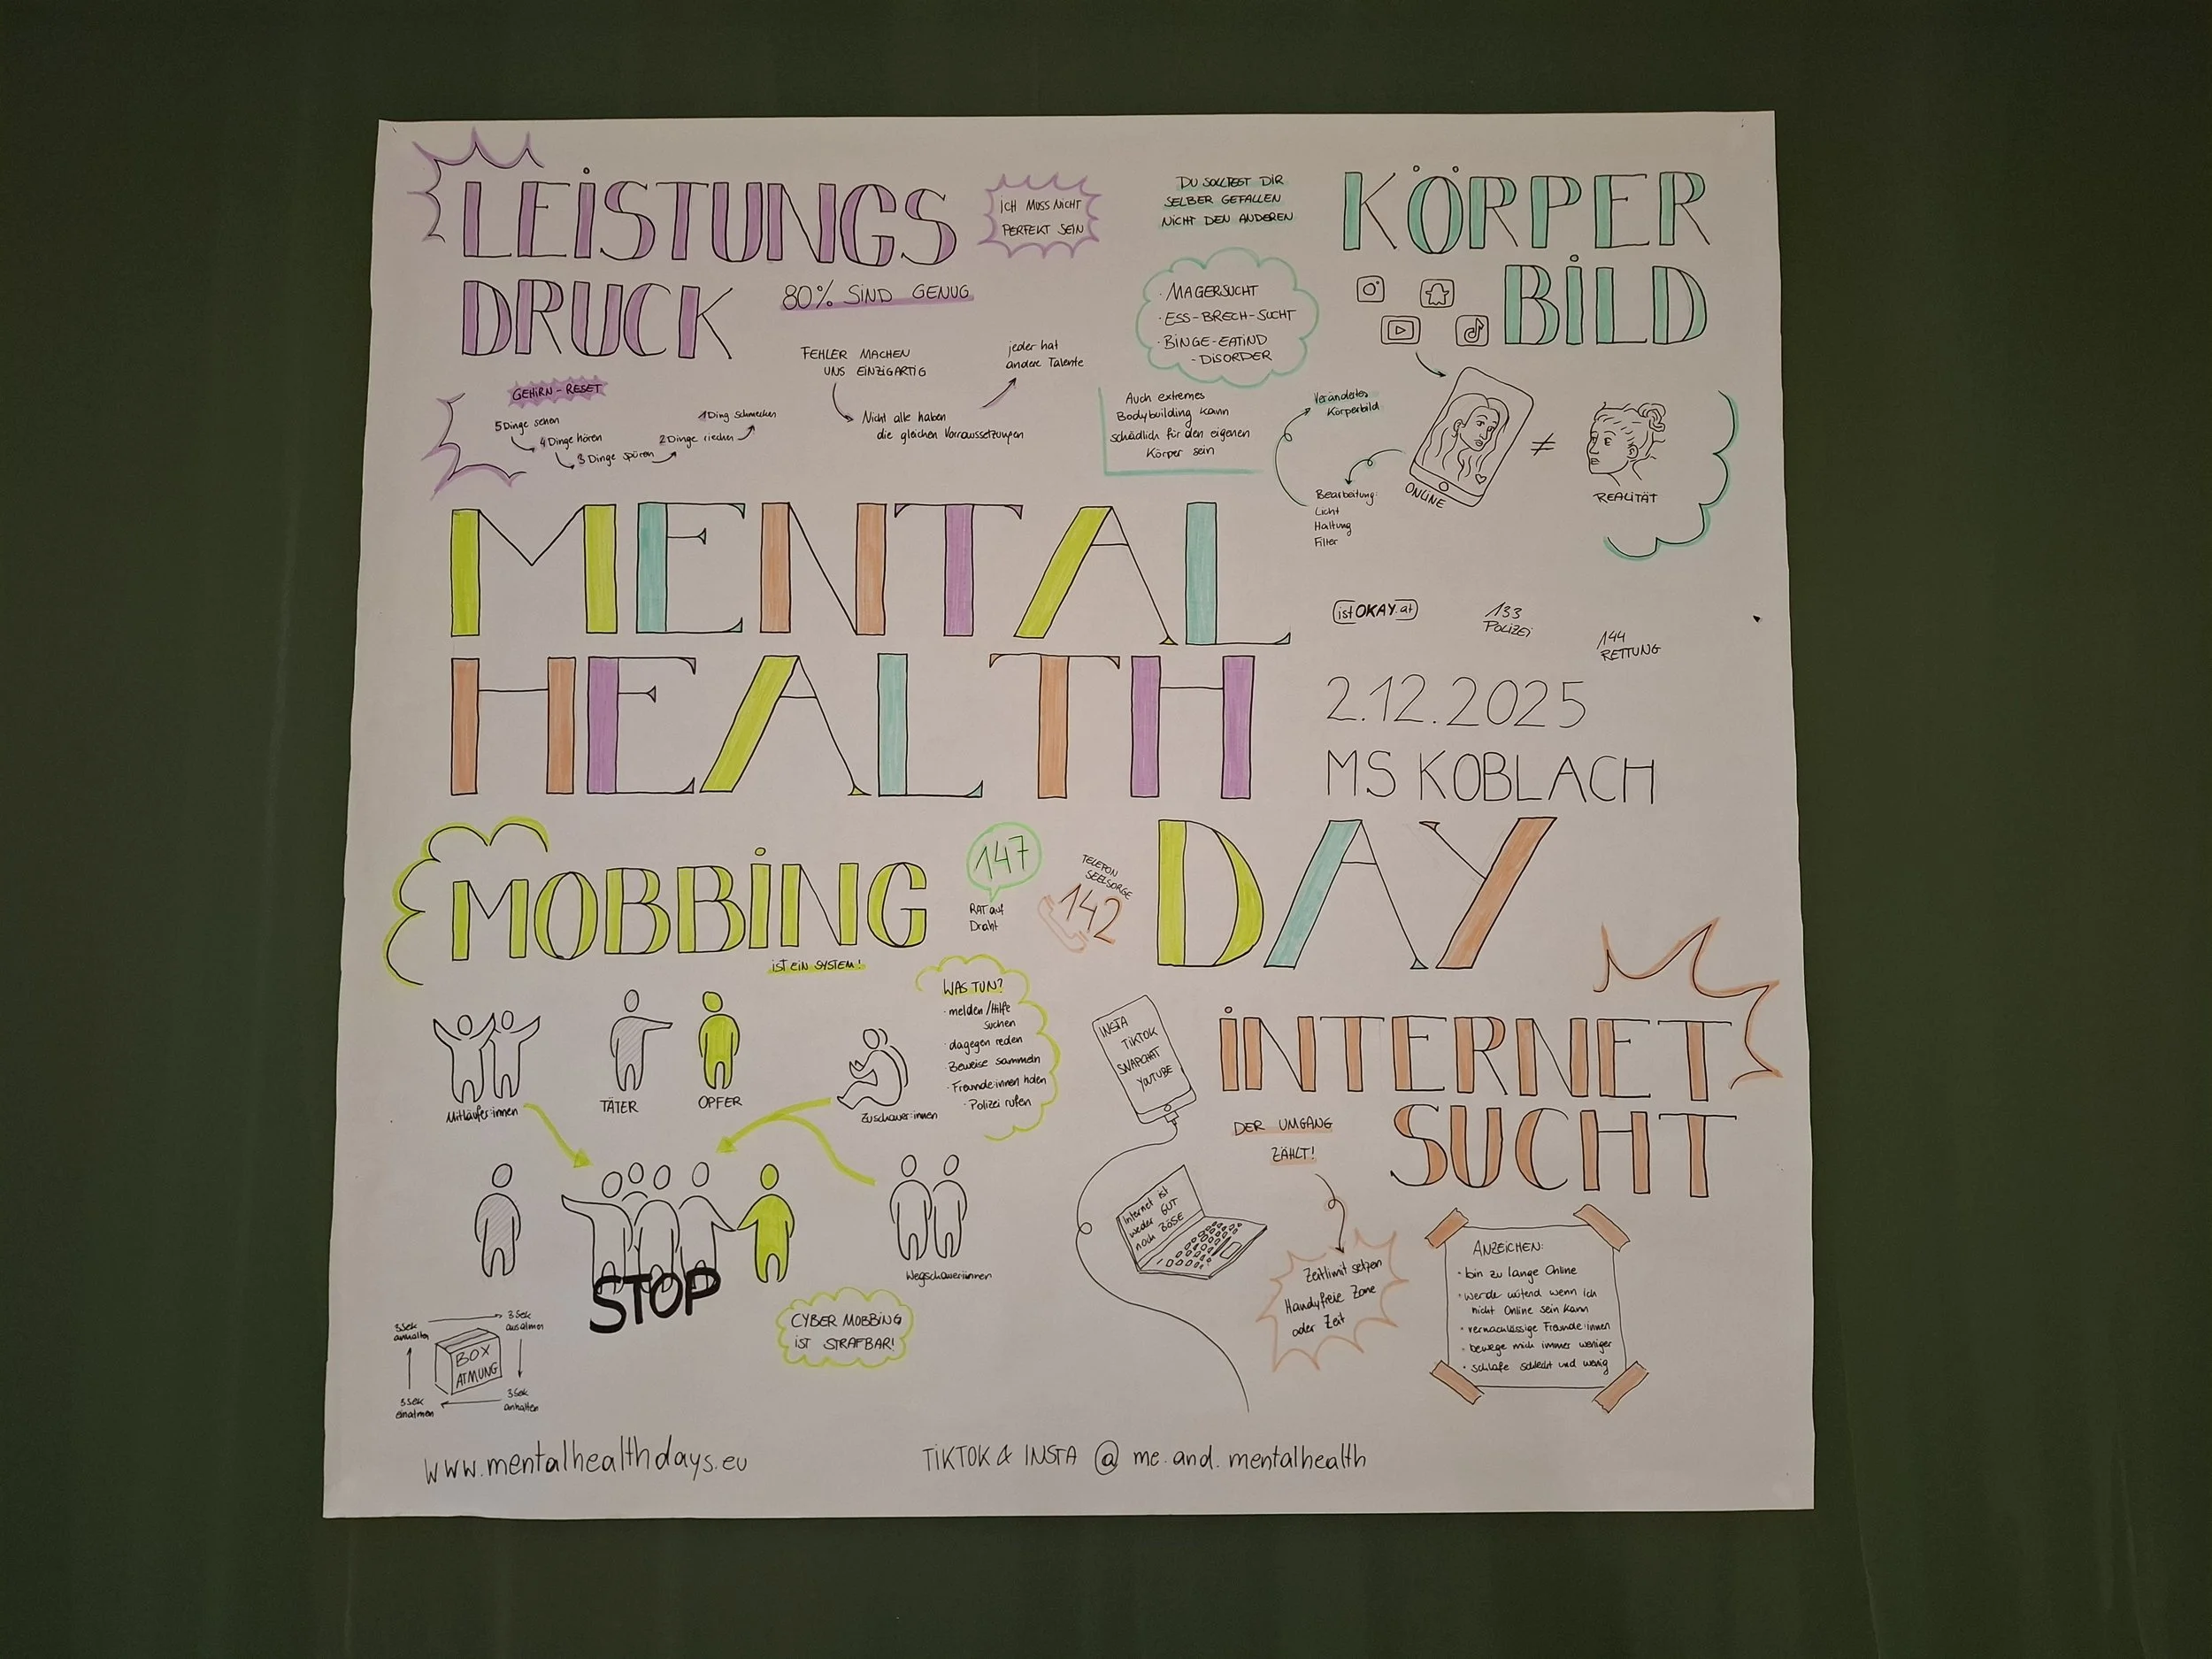 LEISTUNGS
DRUCK
ICH MUSS NICHT
PERFEKT SEIN
80% SIND GENUG
FEHLER MACHEN
UNS EINZIGARTIG
Nicht alle haben
die gleichen Vorraussetzungen
jeder hat
andere Talente
GEHIRN-RESET
5 Dinge sehen
4 Dinge hören
3 Dinge spüren
2 Dinge riechen
1 Ding schmecken
DU SOLLTEST DIR
SELBER GEFALLEN
NICHT DEN ANDEREN
KÖRPER
BILD
· MAGERSUCHT
· ESS-BRECH-SUCHT
· BINGE-EATIND
- DISORDER
Auch extremes
Bodybuilding kann
schädlich für den eigenen
Körper sein
Verändertes
Körperbild
Bearbeitung:
Licht
Haltung
Filter
ONLINE
≠
REALITÄT
MENTAL
HEALTH
DAY
istOKAY.at
133
POLIZEI
144
RETTUNG
2.12.2025
MS KOBLACH
MOBBING
IST EIN SYSTEM!
147
RAT auf
Draht
TELEFON
SEELSORGE
142
Mitläufer:innen
TÄTER
OPFER
Zuschauer:innen
WAS TUN?
· melden/Hilfe
suchen
· dagegen reden
Beweise sammeln
· Freunde:innen holen
· Polizei rufen
STOP
Wegschauer:innen
CYBER MOBBING
IST STRAFBAR!
BOX
ATMUNG
3 Sek
einatmen
3 Sek
anhalten
3 Sek
ausatmen
3 Sek
anhalten
INTERNET
SUCHT
INSTA
TIKTOK
SNAPCHAT
YOUTUBE
DER UMGANG
ZÄHLT!
Internet ist
weder GUT
noch BÖSE
Zeitlimit setzen
Handyfreie Zone
oder Zeit
ANZEICHEN:
· bin zu lange Online
· werde wütend wenn ich
nicht Online sein kann
· vernachlässige Freunde:innen
· bewege mich immer weniger
· schlafe schlecht und wenig
www.mentalhealthdays.eu
TIKTOK & INSTA @ me.and.mentalhealth